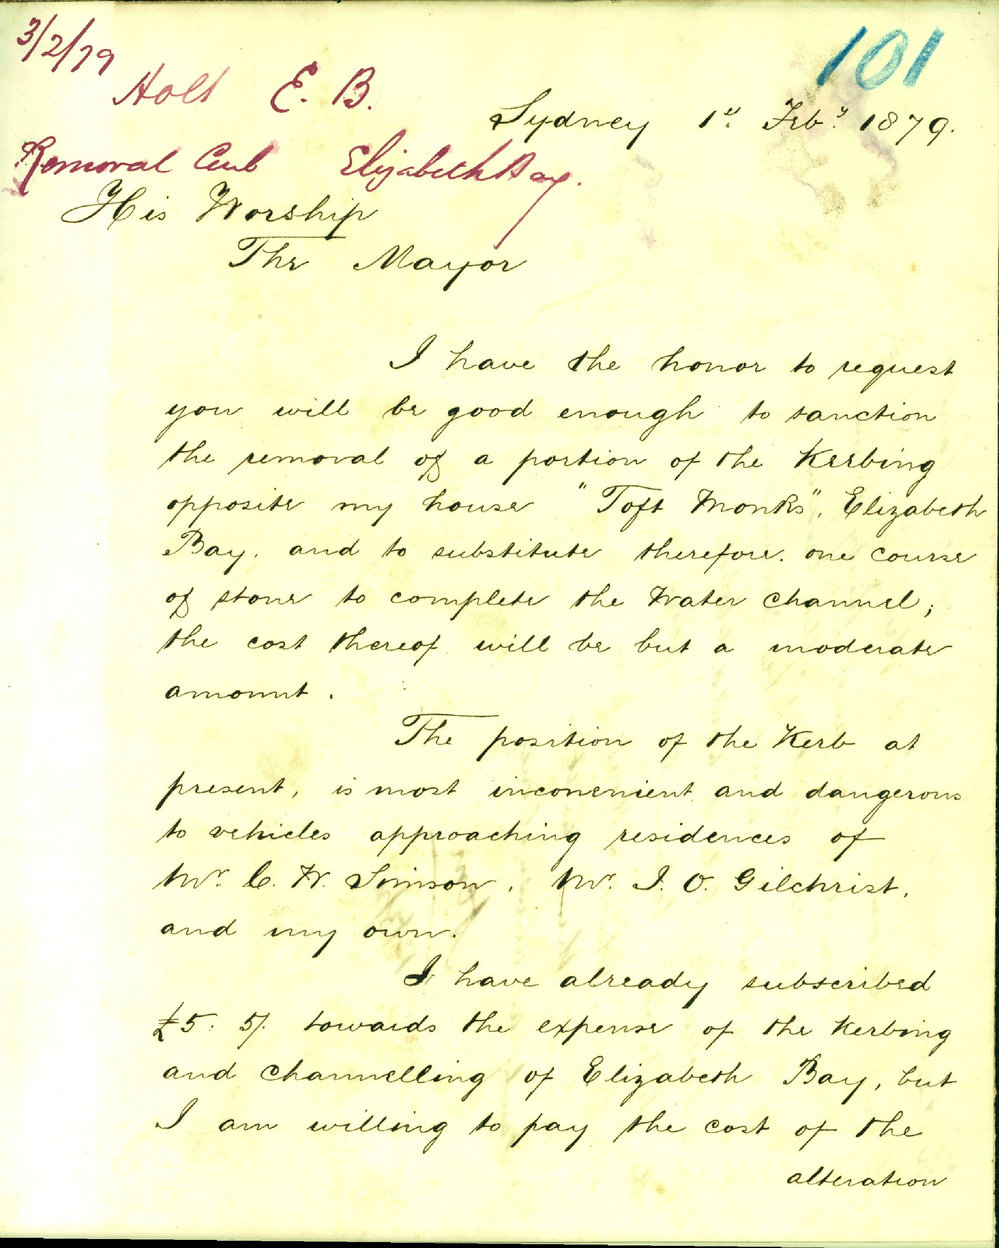 3/2/79
101
Holt E. B.
Sydney 1st Feby 1879.
Removal Curb Elizabeth Bay.
His Worship
The Mayor
I have the honor to request
you will be good enough to sanction
the removal of a portion of the Kerbing
opposite my house "Toft Monks", Elizabeth
Bay. and to substitute therefore. one course
of stone to complete the Water Channel;
the cost thereof will be but a moderate
amount.
The position of the Kerb at
present, is most inconenient and dangerous
to vehicles approaching residences of
Mr. C. W. Simson, Mr. J. O. Gilchrist,
and my own.
I have already subscribed
£5. 5/. towards the expense of the Kerbing
and channelling of Elizabeth Bay, but
I am willing to pay the cost of the
alteration